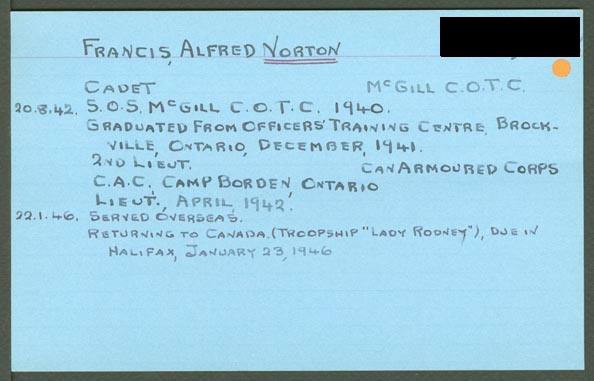 FRANCIS, ALFRED NORTON
CADET McGILL C.O.T.C.
20.8.42. S.O.S. McGILL C.O.T.C. 1940.
GRADUATED FROM OFFICERS' TRAINING CENTRE, BROCK-
VILLE, ONTARIO, DECEMBER, 1941.
2ND LIEUT. CAN ARMOURED CORPS
C.A.C., CAMP BORDEN, ONTARIO
LIEUT., APRIL, 1942.
22.1.46. SERVED OVERSEAS.
RETURNING TO CANADA. (TROOPSHIP "LADY RODNEY"), DUE IN
HALIFAX, JANUARY 23, 1946